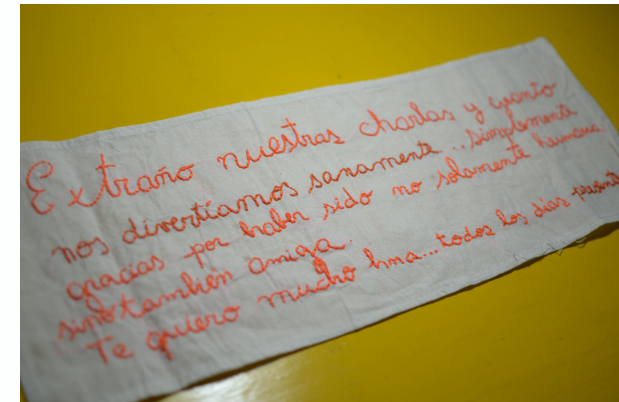 Extraño nuestras charlas y cuanto
nos divertíamos sanamente...simplemente
gracias por haber sido no solamente hermana
sino también amiga.
Te quiero mucho hma...todos los días presente